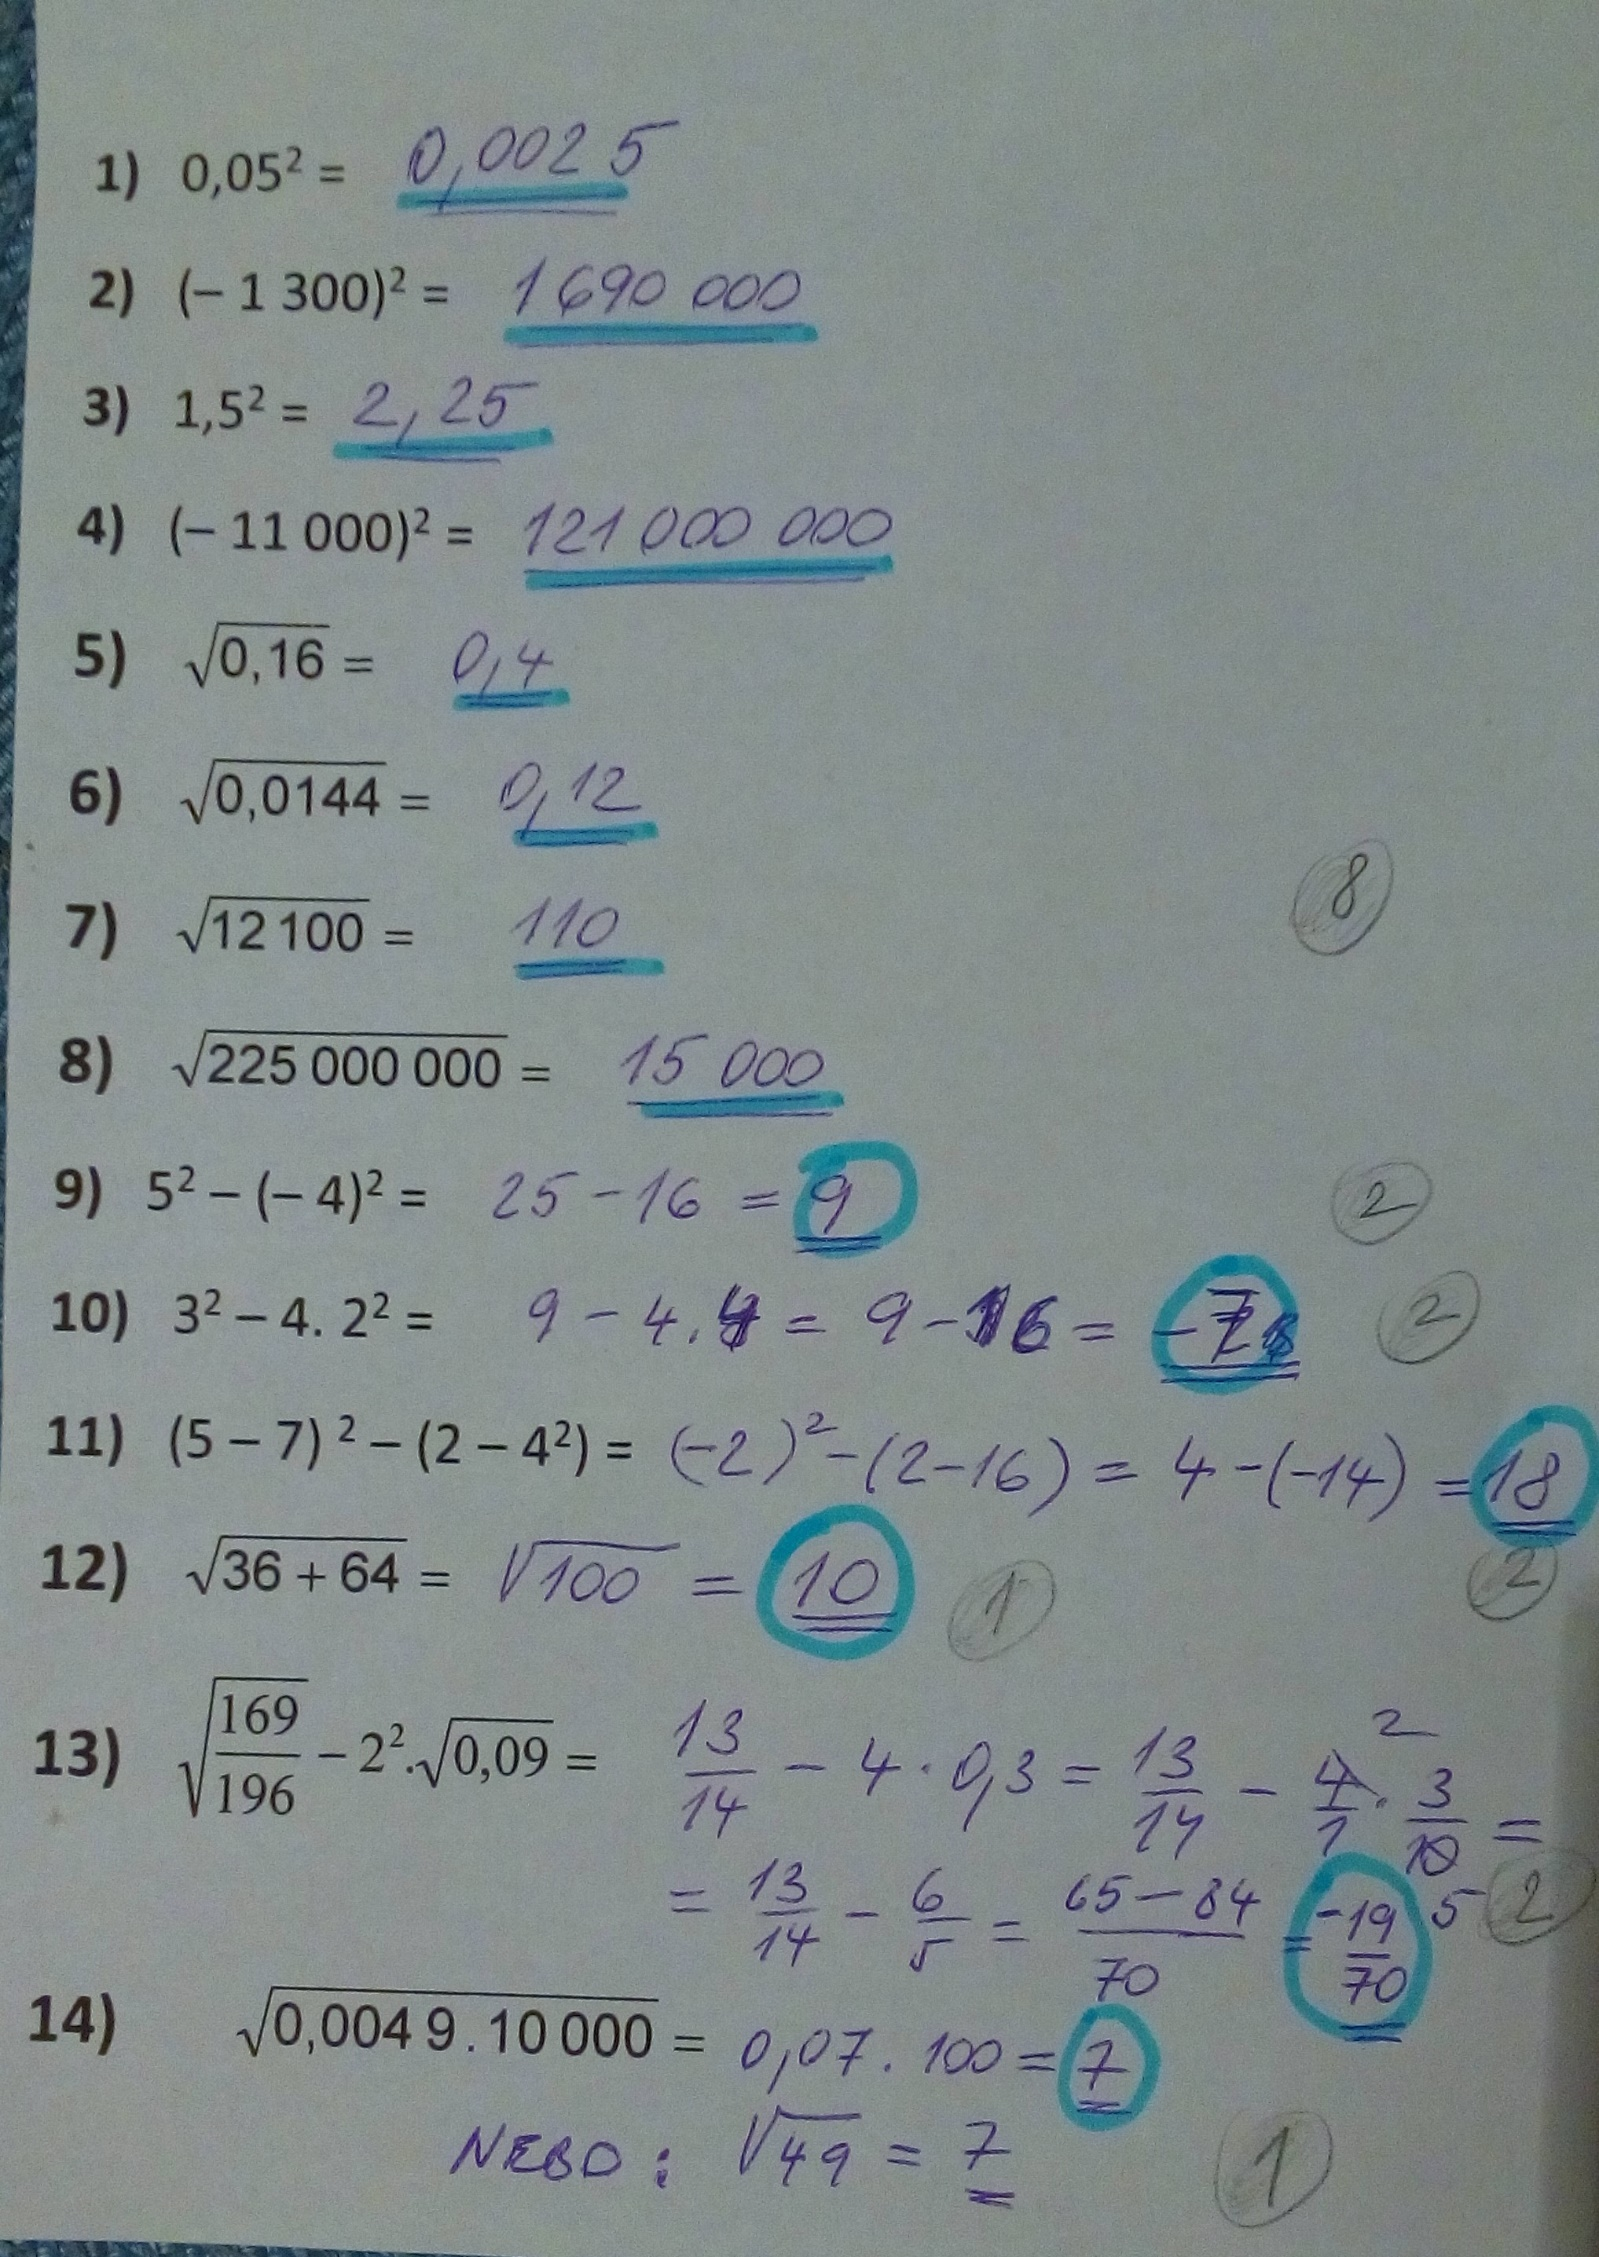 1) 0,05² = 0,0025
2) (– 1 300)² = 1 690 000
3) 1,5² = 2,25
4) (– 11 000)² = 121 000 000
5) √0,16 = 0,4
6) √0,0144 = 0,12
7) √12 100 = 110
8
8) √225 000 000 = 15 000
9) 5² – (– 4)² = 25 - 16 = 9 2
10) 3² – 4. 2² = 9 - 4.4 = 9 - 16 = -7 2
11) (5 – 7) ² – (2 – 4²) = (-2)² - (2-16) = 4 - (-14) = 18
12) √36 + 64 = √100 = 10 1 2
13) √169/196 – 2².√0,09 = 13/14 - 4 · 0,3 = 13/14 - 4/1 · 3/10 = 2
= 13/14 - 6/5 = 65-84/70 = -19/70 5 2
14) √0,004 9 . 10 000 = 0,07 . 100 = 7
NEBO : √49 = 7 1